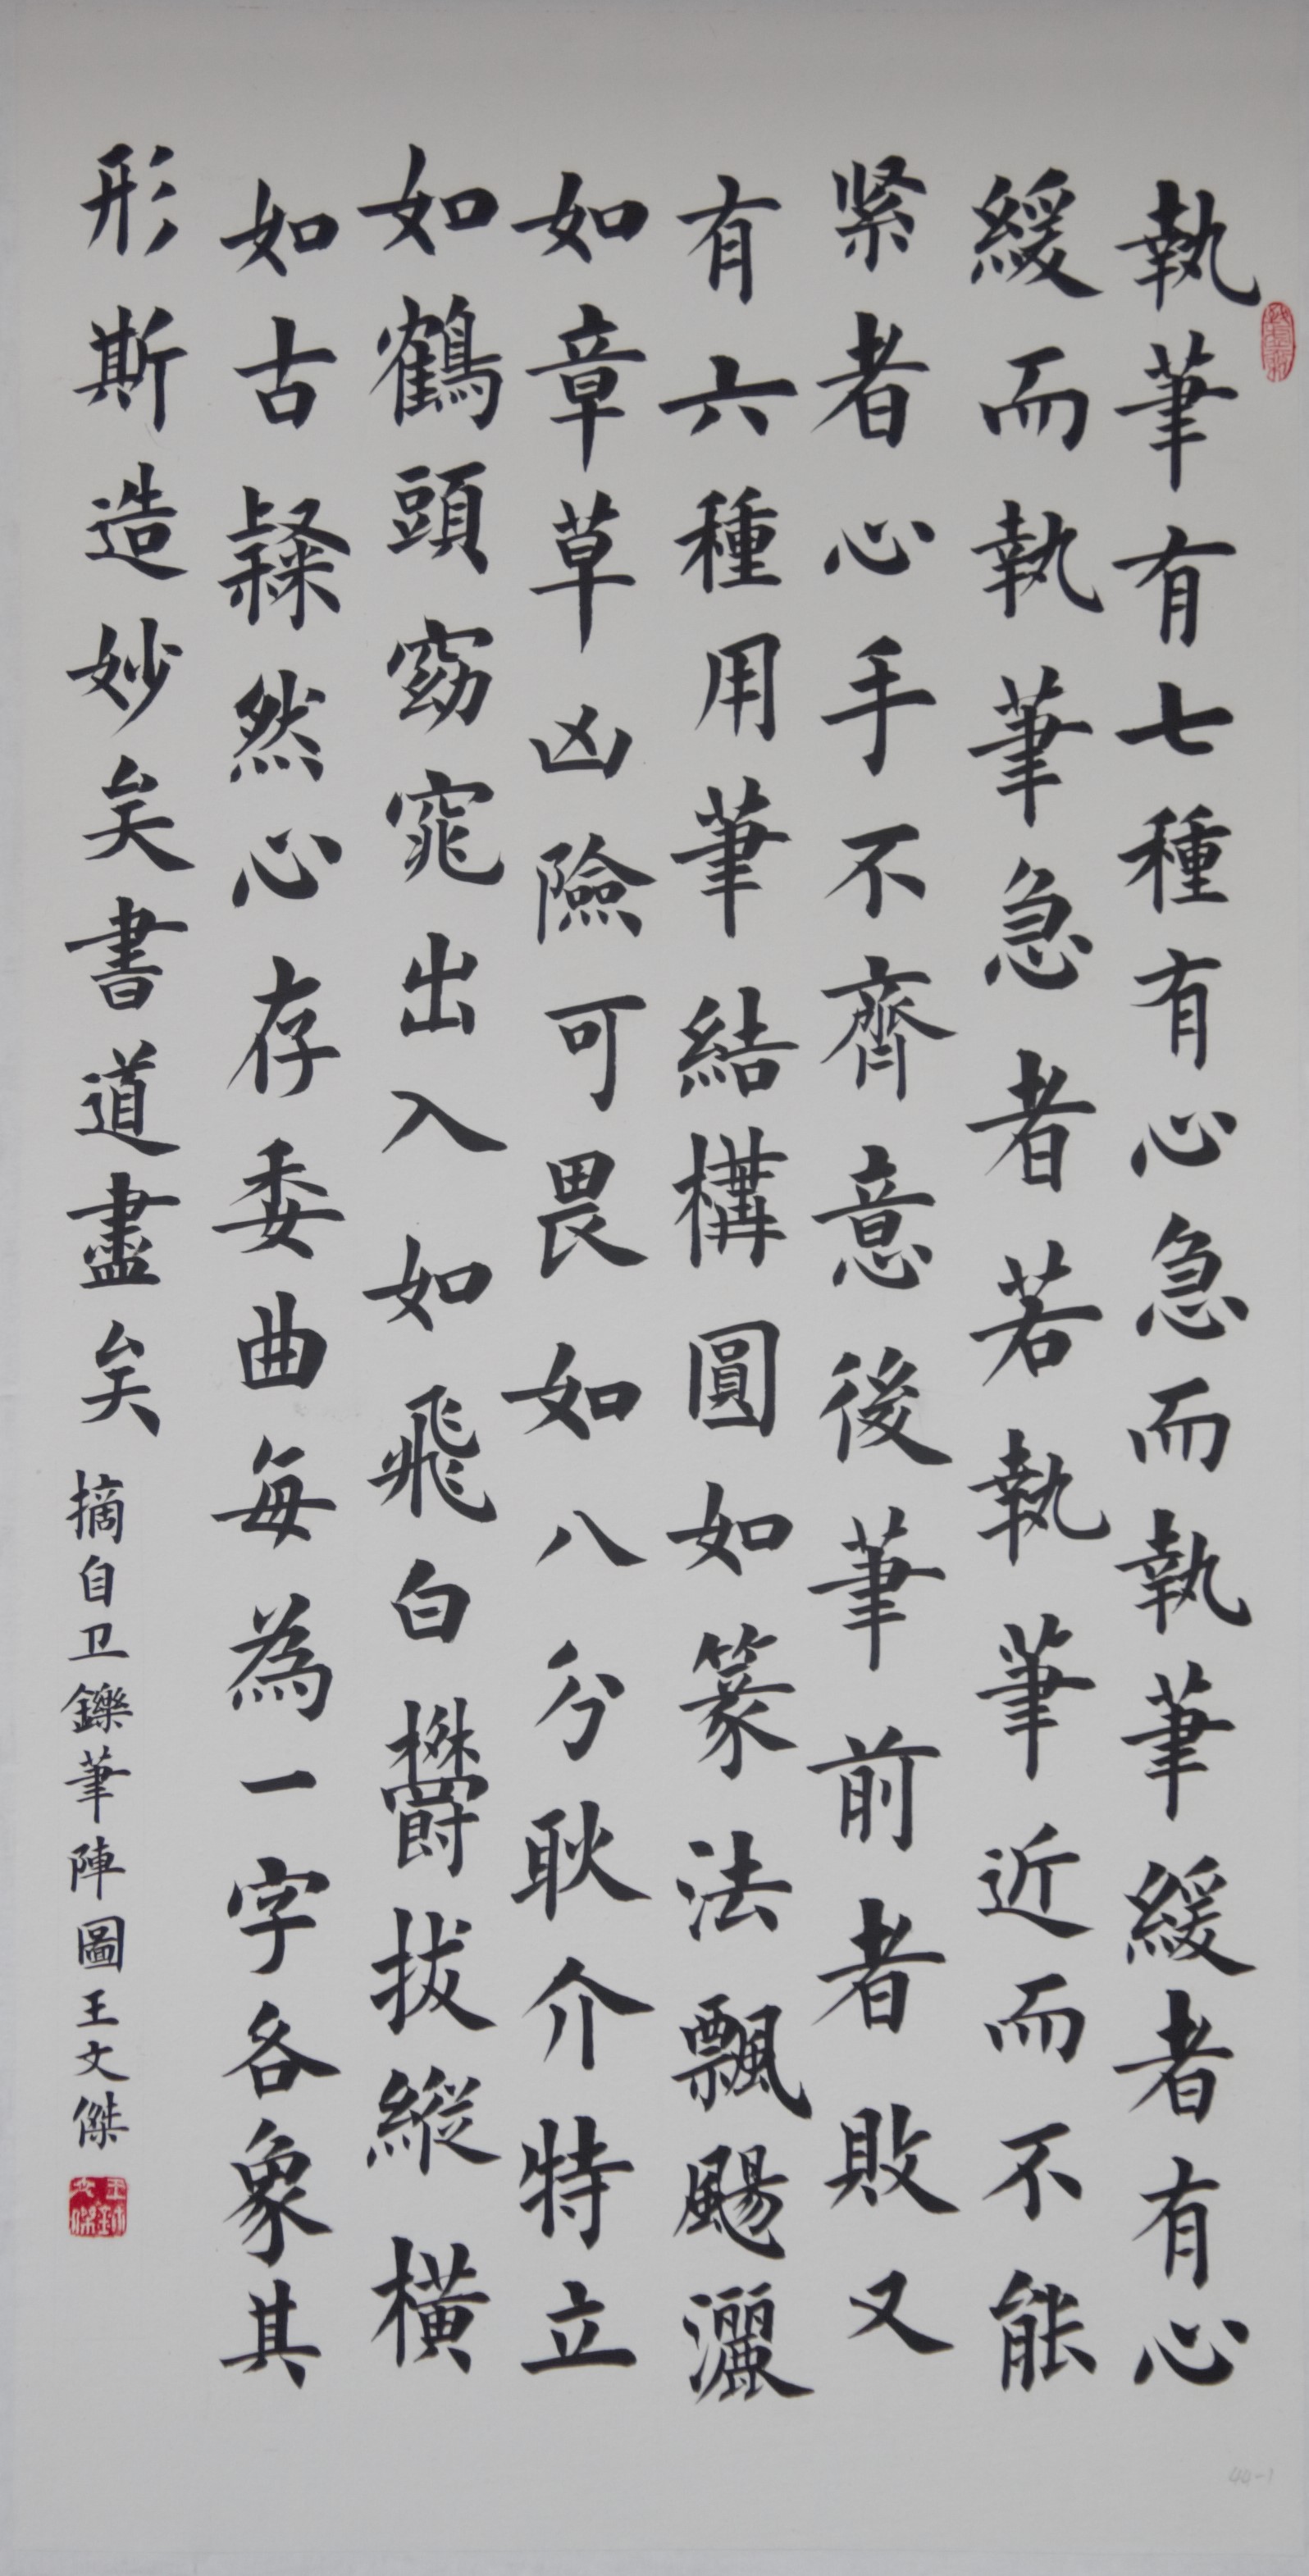 執筆有七種有心急而執筆緩者有心
緩而執筆急者若執筆近而不能
紧者心手不齊意後筆前者敗又
有六種用筆結構圓如篆法飄颺灑
如章草凶險可畏如八分耿介特立
如鶴頭窈窕出入如飛白欝拔縱橫
如古隸然心存委曲每為一字各象其
形斯造妙矣書道盡矣
摘自卫鑠筆陣圖王文傑